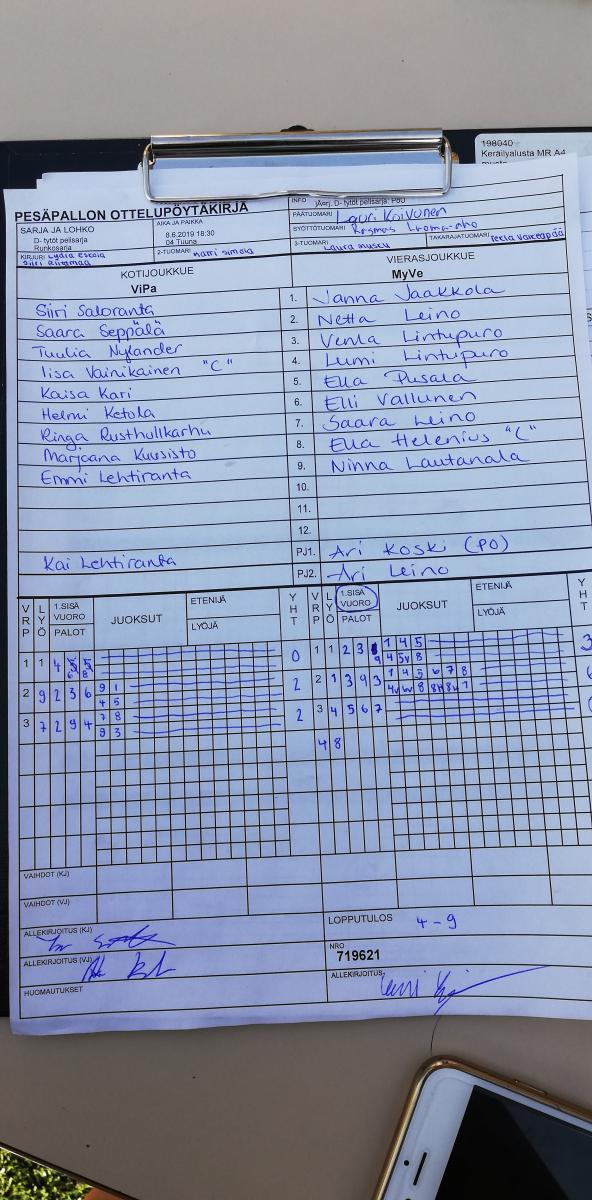 198040
Keräilyalusta MR A4
musta
PESÄPALLON OTTELUPÖYTÄKIRJA
SARJA JA LOHKO
D- tytöt pelisarja
Runkosarja
AIKA JA PAIKKA
8.6.2019 18:30
04 Tuuna
INFO jÄorj. D- tytöt pelisarja: PöU
PÄÄTUOMARI Lauri Koivunen
SYÖTTÖTUOMARI
KIRJURI Lydia Eskola
Siiri Riitamaa
2-TUOMARI Matti Simola
3-TUOMARI Laura
TAKARAJATUOMARI
KOTIJOUKKUE
ViPa
VIERASJOUKKUE
MyVe
Siiri Saloranta 1. Janna Jaakkola
Saara Seppälä 2. Netta Leino
Tuulia Nylander 3. Venla Lintupuro
Iisa Vainikainen "C" 4. Lumi Lintupuro
Kaisa Kari 5. Ella Pusala
Helmi Ketola 6. Elli Vallunen
Ringa Rusthollkarhu 7. Saara Leino
Marjaana Kuusisto 8. Ella Helenius "C"
Emmi Lehtiranta 9. Ninna Lautanala
10.
11.
12.
Kai Lehtiranta PJ1. Ari Koski (PO)
PJ2. Ari Leino
VRP LYÖ 1.SISÄ VUORO PALOT JUOKSUT ETENIJÄ LYÖJÄ YHT VRP LYÖ 1.SISÄ VUORO PALOT JUOKSUT ETENIJÄ LYÖJÄ YHT
1 1 4 0 1 1 2 3 1 4 5 3
9 4 5V 8
2 9 2 3 6 9 1 2 2 1 3 9 3 1 4 5 6 7 8
4 5
3 7 2 9 4 7 8 2 3 4 5 6 7
9 3
4 8
VAIHDOT (KJ)
VAIHDOT (VJ)
ALLEKIRJOITUS (KJ)
LOPPUTULOS 4-9
ALLEKIRJOITUS (VJ)
NRO
719621
HUOMAUTUKSET
ALLEKIRJOITUS